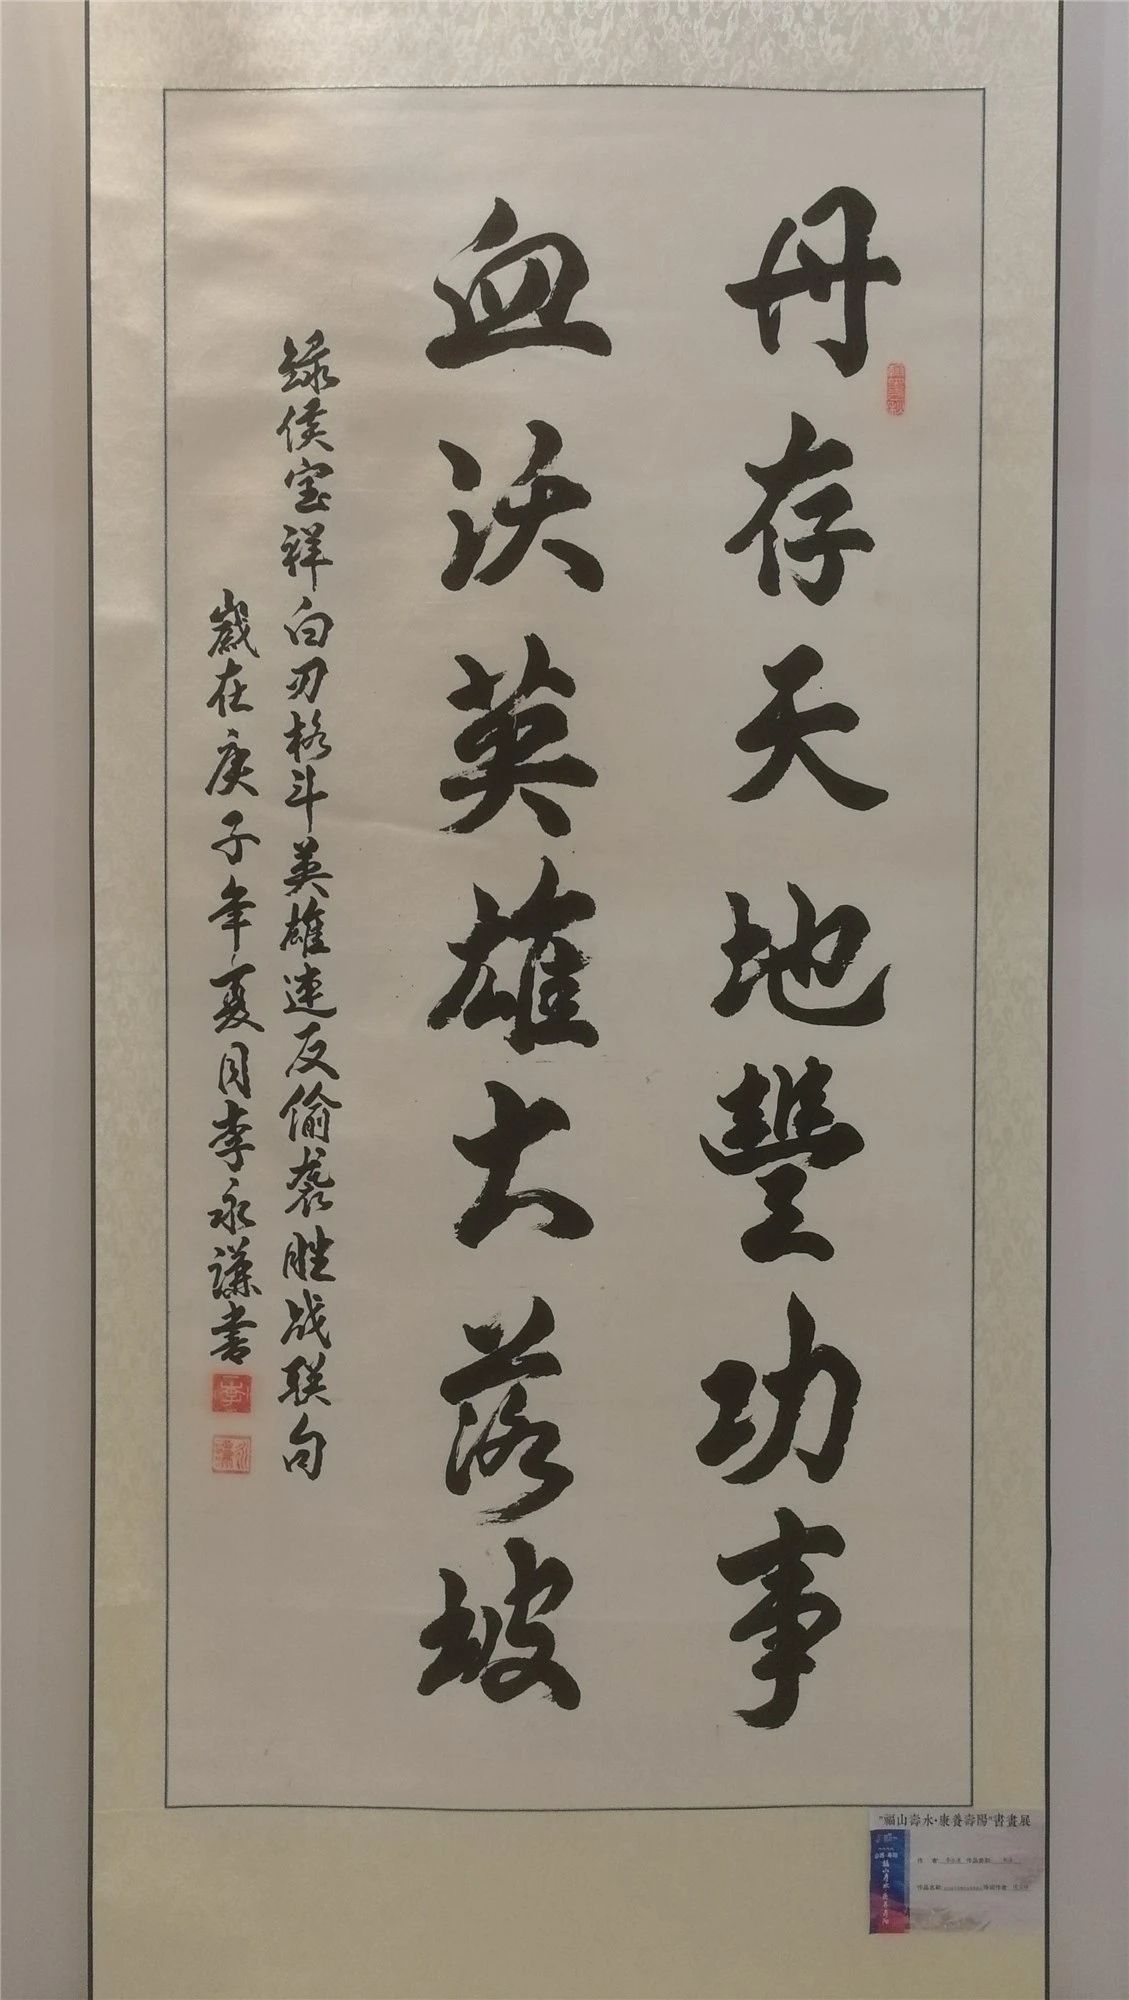 丹存天地豐功事
血沃英雄大落坡
録侯宝祥白刃格斗英雄连反偷袭胜战联句
歲在庚子年夏月李永謙書
"福山壽水·康養壽陽"書畫展
作者 作品類别
作品名稱